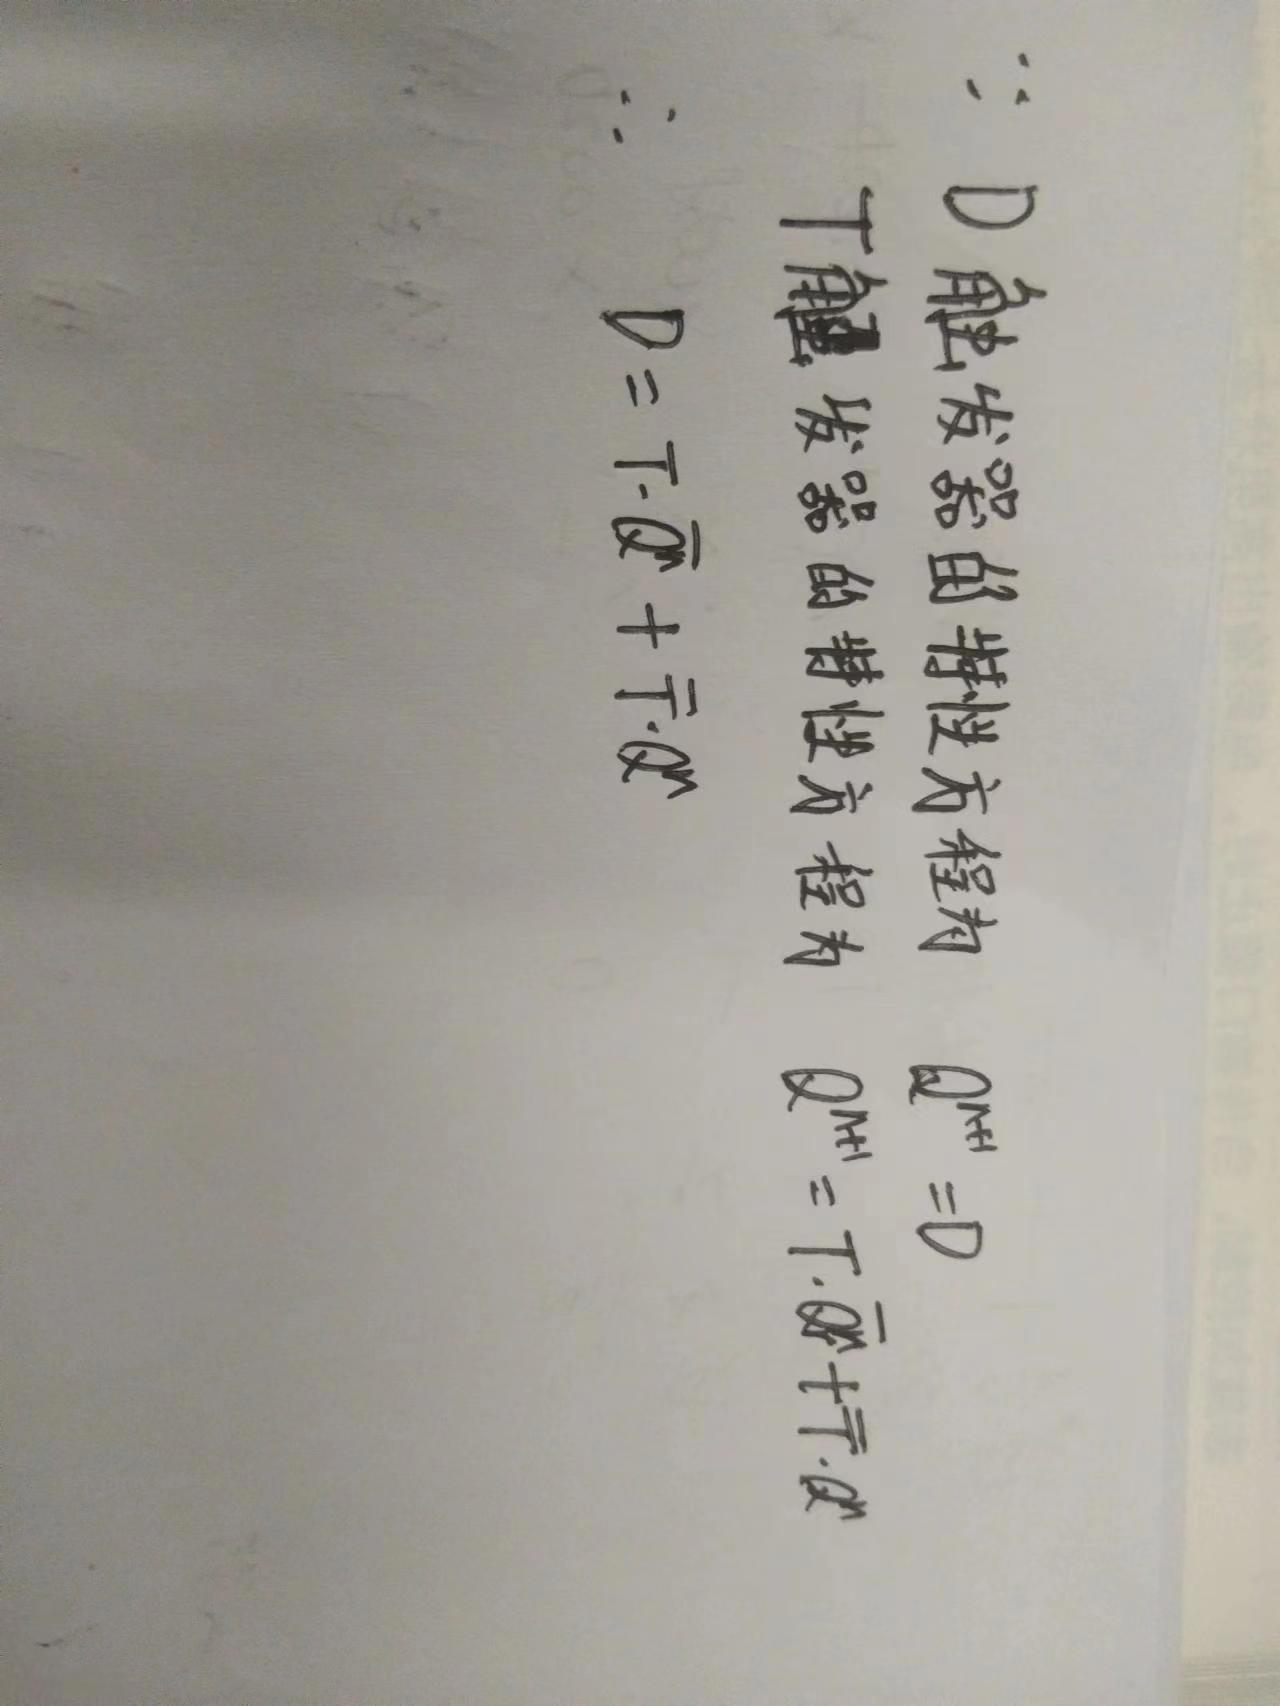 ∵ D触发器的特性方程为 Qⁿ⁺¹ = D
T触发器的特性方程为 Qⁿ⁺¹ = T·Q̅ⁿ + T̅·Qⁿ
∴ D = T·Q̅ⁿ + T̅·Qⁿ